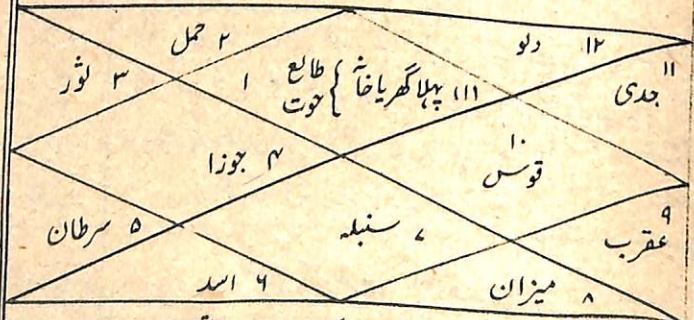 ۲ حمل
۱۲ دلو
۳ ثور
۱ طالع حوت } ۱۱۱ پہلا گھر یا خانہ
۱۱ جدی
۴ جوزا
۱۰ قوس
۵ سرطان
۷ سنبلہ
۹ عقرب
۶ اسد
۸ میزان